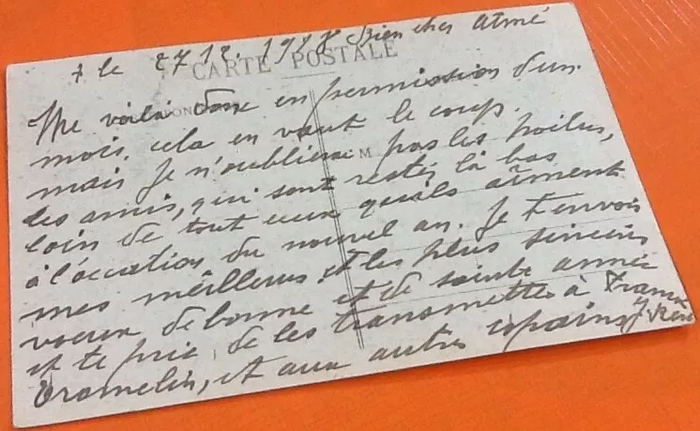 le 27 12. 1917 Bien cher Aimé
CARTE POSTALE
Me voilà donc en permission d'un
mois, cela en vaut le coup.
mais je n'oublierai pas les poilus,
les amis, qui sont restés là bas
loin de tout ceux qu'ils aiment
à l'occasion du nouvel an. Je t'envois
mes meilleurs et les plus sincères
voeux de bonne et de sainte année
et te prie de les transmettre à Franck
Tromelin, et aux autres copains